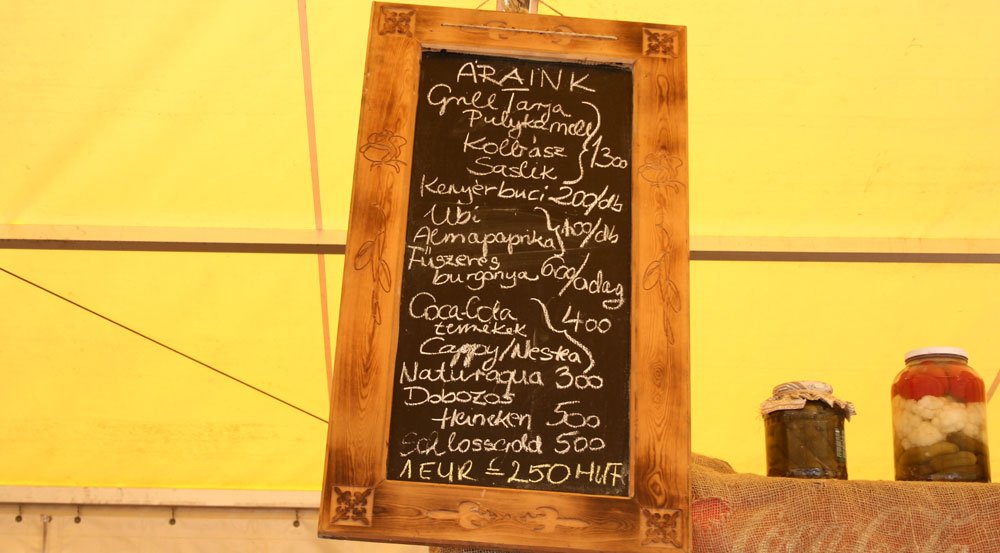 ÁRAINK
Grill Tarja
Pulykamell
Kolbász
Saslik
1300
Kenyérbuci 200/db
Ubi
Almapaprika 100/db
Fűszeres
burgonya 600/adag
Coca-Cola
termékek 400
Cappy/Nestea
Naturaqua 300
Dobozos
Heineken 500
Schlossgold 500
1 EUR = 250 HUF
Coca-Cola